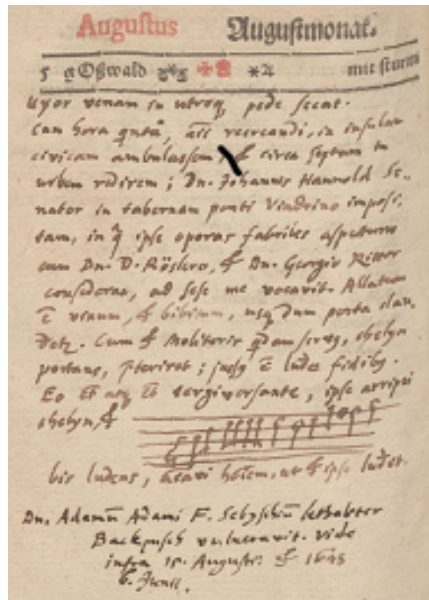 Augustus Augustmonat.
5 g Oßwald mit sturm
Uxor venam in utroq, pede secat.
Cum hora quinta, animi recreandi, in insulam
civicam ambulassem, & circa septimam in
urbem redirem; Dn. Johannes Hannold Se-
nator in tabernam ponti Viadrino imposi-
tam, in q ipse operas fabriles aspecturus
cum Dn. D. Röslero, & Dn. Georgio Ritter
consederat, ad sese me vocavit. Allatum
ē vinum, & bibitum, usq dum porta clau-
Cum & Molitoris qdam servus, chelyn
portans, pteriret; jussq ē ludere fidibq.
Eo et tergiversante, ipse arripui
chelyn, &
bis ludens, ut & ipse luderet.
Dn. Adamū Adami F. Sebyschiū
vulneravit. vide
infra 15. Augusti: & 1648
6. Junii.